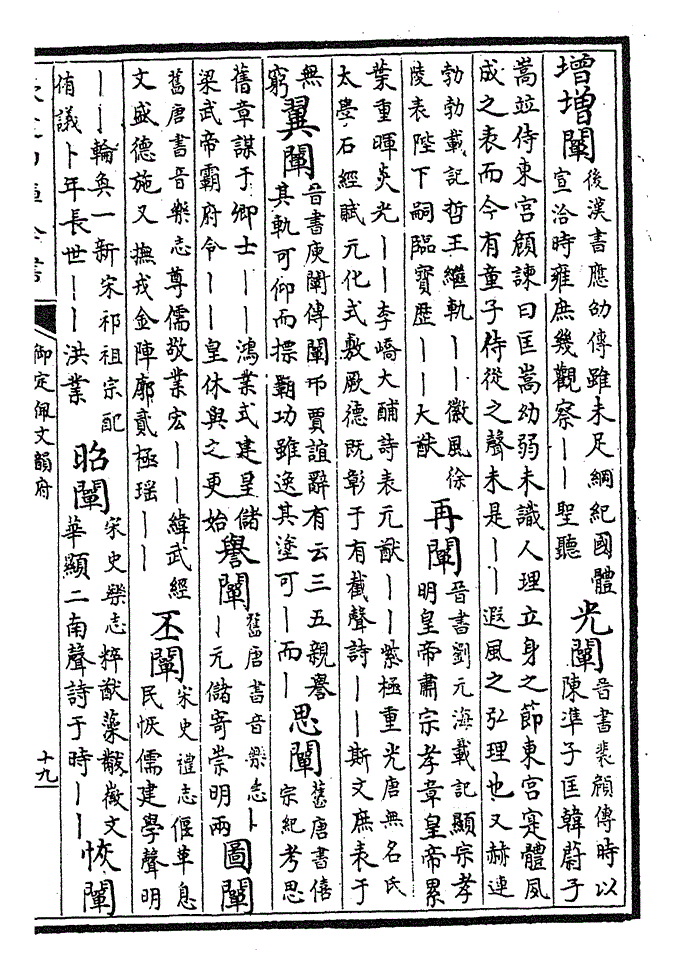 增增闡
後漢書應劭傳雖未足綱紀國體
宣洽時雍庶幾觀察丨丨聖聽
光闡
晉書裴頠傳時以
陳準子匡韓蔚子
嵩竝侍東宮頠諫曰匡嵩幼弱未識人理立身之節東宮寔體夙
成之表而今有童子侍從之聲未是丨丨遐風之弘理也又赫連
勃勃載記哲王繼軌丨丨徽風徐
陵表陛下嗣臨寶歷丨丨大猷
再闡
晉書劉元海載記顯宗孝
明皇帝肅宗孝章皇帝累
葉重暉炎光丨丨李嶠大酺詩表元猷丨丨紫極重光唐無名氏
太學石經賦元化式敷厥德既彰于有截聲詩丨丨斯文庶表于
無
窮
翼闡
晉書庾闡傳闡弔賈誼辭有云三五親譽
其軌可仰而摽霸功雖逸其塗可丨而丨
思闡
舊唐書僖
宗紀考思
舊章謀于卿士丨丨鴻業式建皇儲
梁武帝霸府令丨丨皇休與之更始
譽闡
舊唐書音樂志卜
丨元儲寄崇明兩
圖闡
舊唐書音樂志尊儒敬業宏丨丨緯武經
文盛德施又撫戎金陣廓貳極瑤丨丨
丕闡
宋史禮志偃革息
民恢儒建學聲明
丨丨輪奐一新宋祁祖宗配
侑議卜年長世丨丨洪業
昭闡
宋史樂志粹猷藻黻徽文
華顯二南聲詩于時丨丨
恢闡
御定佩文韻府
十九